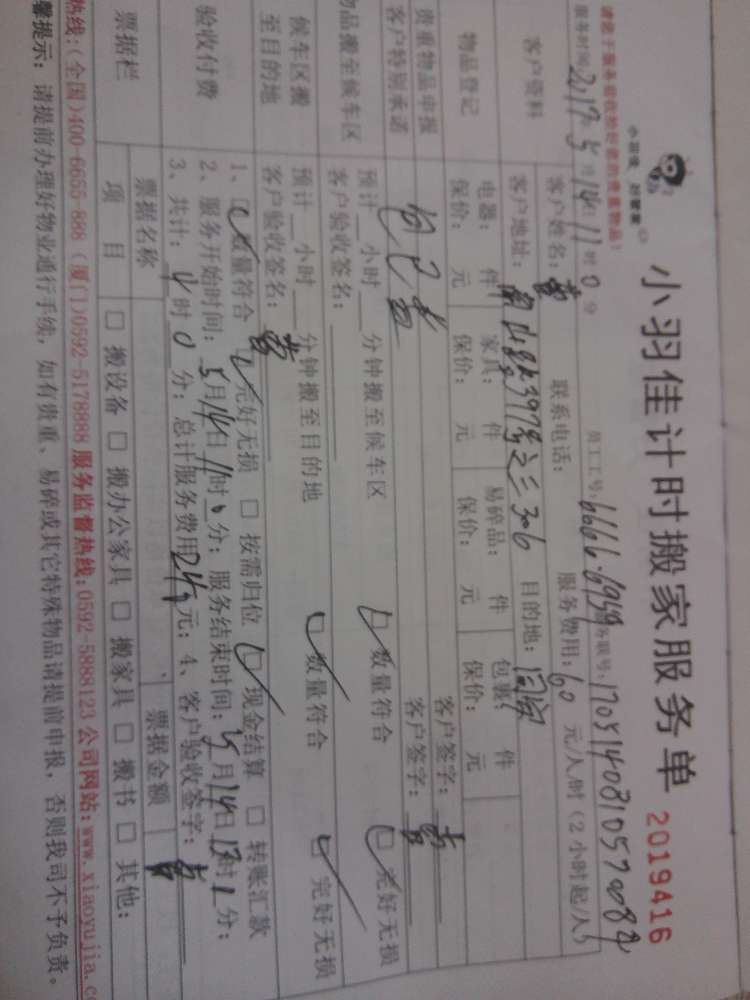 请您于服务验收前好保管贵重物品!
小羽佳 好管家
小羽佳计时搬家服务单 2019416
服务时间:2017年5月14日11时0分 员工工号:6666.6959 务联号:
客户资料 客户姓名:黄 联系电话: 服务费用:60 元/人/时(2小时起/人)
客户地址: 397号之三306 目的地:同安
物品登记 电器: 件 家具: 件 易碎品: 件 包裹: 件
保价: 元 保价: 元 保价: 元 保价: 元
贵重物品申报 客户签字:黄
客户特别承诺 客户签字:黄
物品搬至候车区 预计__小时__分钟搬至候车区 数量符合 完好无损
客户验收签名:
候车区搬至目的地 预计__小时__分钟搬至目的地 数量符合 完好无损
客户验收签名:黄
验收付费 1、数量符合 完好无损 □ 按需归位 现金结算 □ 转账汇款
2、服务开始时间:5月14日11时0分;服务结束时间:5月14日13时 分;
3、共计:4时0分;总计服务费用 元;4、客户验收签字:黄
票据栏 票据名称 票据金额
项 目 □ 搬设备 □ 搬办公家具 □ 搬家具 □ 搬书 □ 其他:
热线:(全国)400-6655-888 (厦门)0592-5178888 服务监督热线:0592-5888123 公司网站:www.xiaoyujia.c
馨提示:请提前办理好物业通行手续,如有贵重、易碎或其它特殊物品请提前申报,否则我司不予负责。